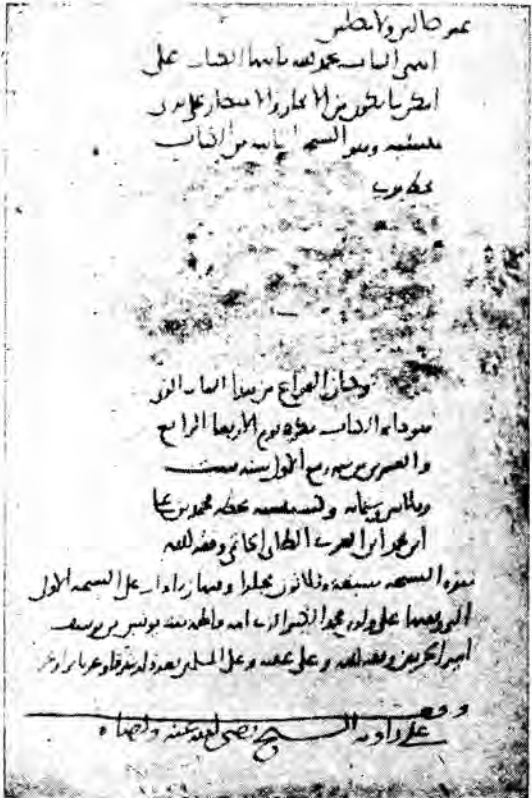 غير ضالين ولا مضلين
انتهى الباب بحمد الله بانتها الكتاب على
امكن ما يكون من الايجاز والاختصار على يدى
منشيه وهو النسخه الثانيه من الكتاب
بخط يدى
وكان الفراغ من هذا الباب الذى
هو خاتمه الكتاب بكره يوم الاربعا الرابع
والعشرين من شهر ربيع الاول سنه ست
وثلاثين وستمايه وكتب منشيه بخطه محمد بن على
ابن محمد ابن العربى الطائى الحاتمى وفقه الله
هذه النسخه سبعه وثلاثون مجلدا وفيها زيادات على النسخه الاولى
التى وقفتها على ولدى محمد الكبير الذى امه فاطمه بنت يونس بن يوسف
امير الحرمين وفقه الله وعلى عقبه وعلى المسلمين بعد ذلك شرقا وغربا برا وبحرا
وقف
على زاويه الشيخ رضى الله عنه وارضاه